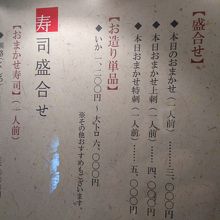 【盛合せ】
◆本日のおまかせ(一人前)……三、〇〇〇円
◆本日おまかせ上刺(一人前)……四、〇〇〇円
◆本日おまかせ特刺(一人前)……五、〇〇〇円
【お造り単品】
◆いか一、二〇〇円〜大トロ六、〇〇〇円
※その他おすすめもございます。
寿司盛合せ
【おまかせ寿司】(一人前)